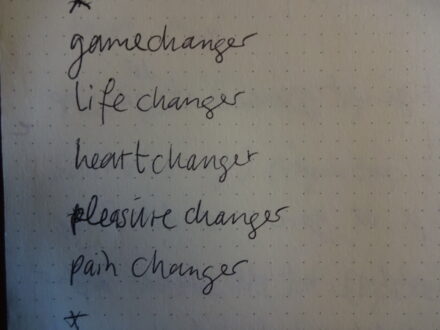 *
gamechanger
life changer
heartchanger
pleasure changer
pain changer
*